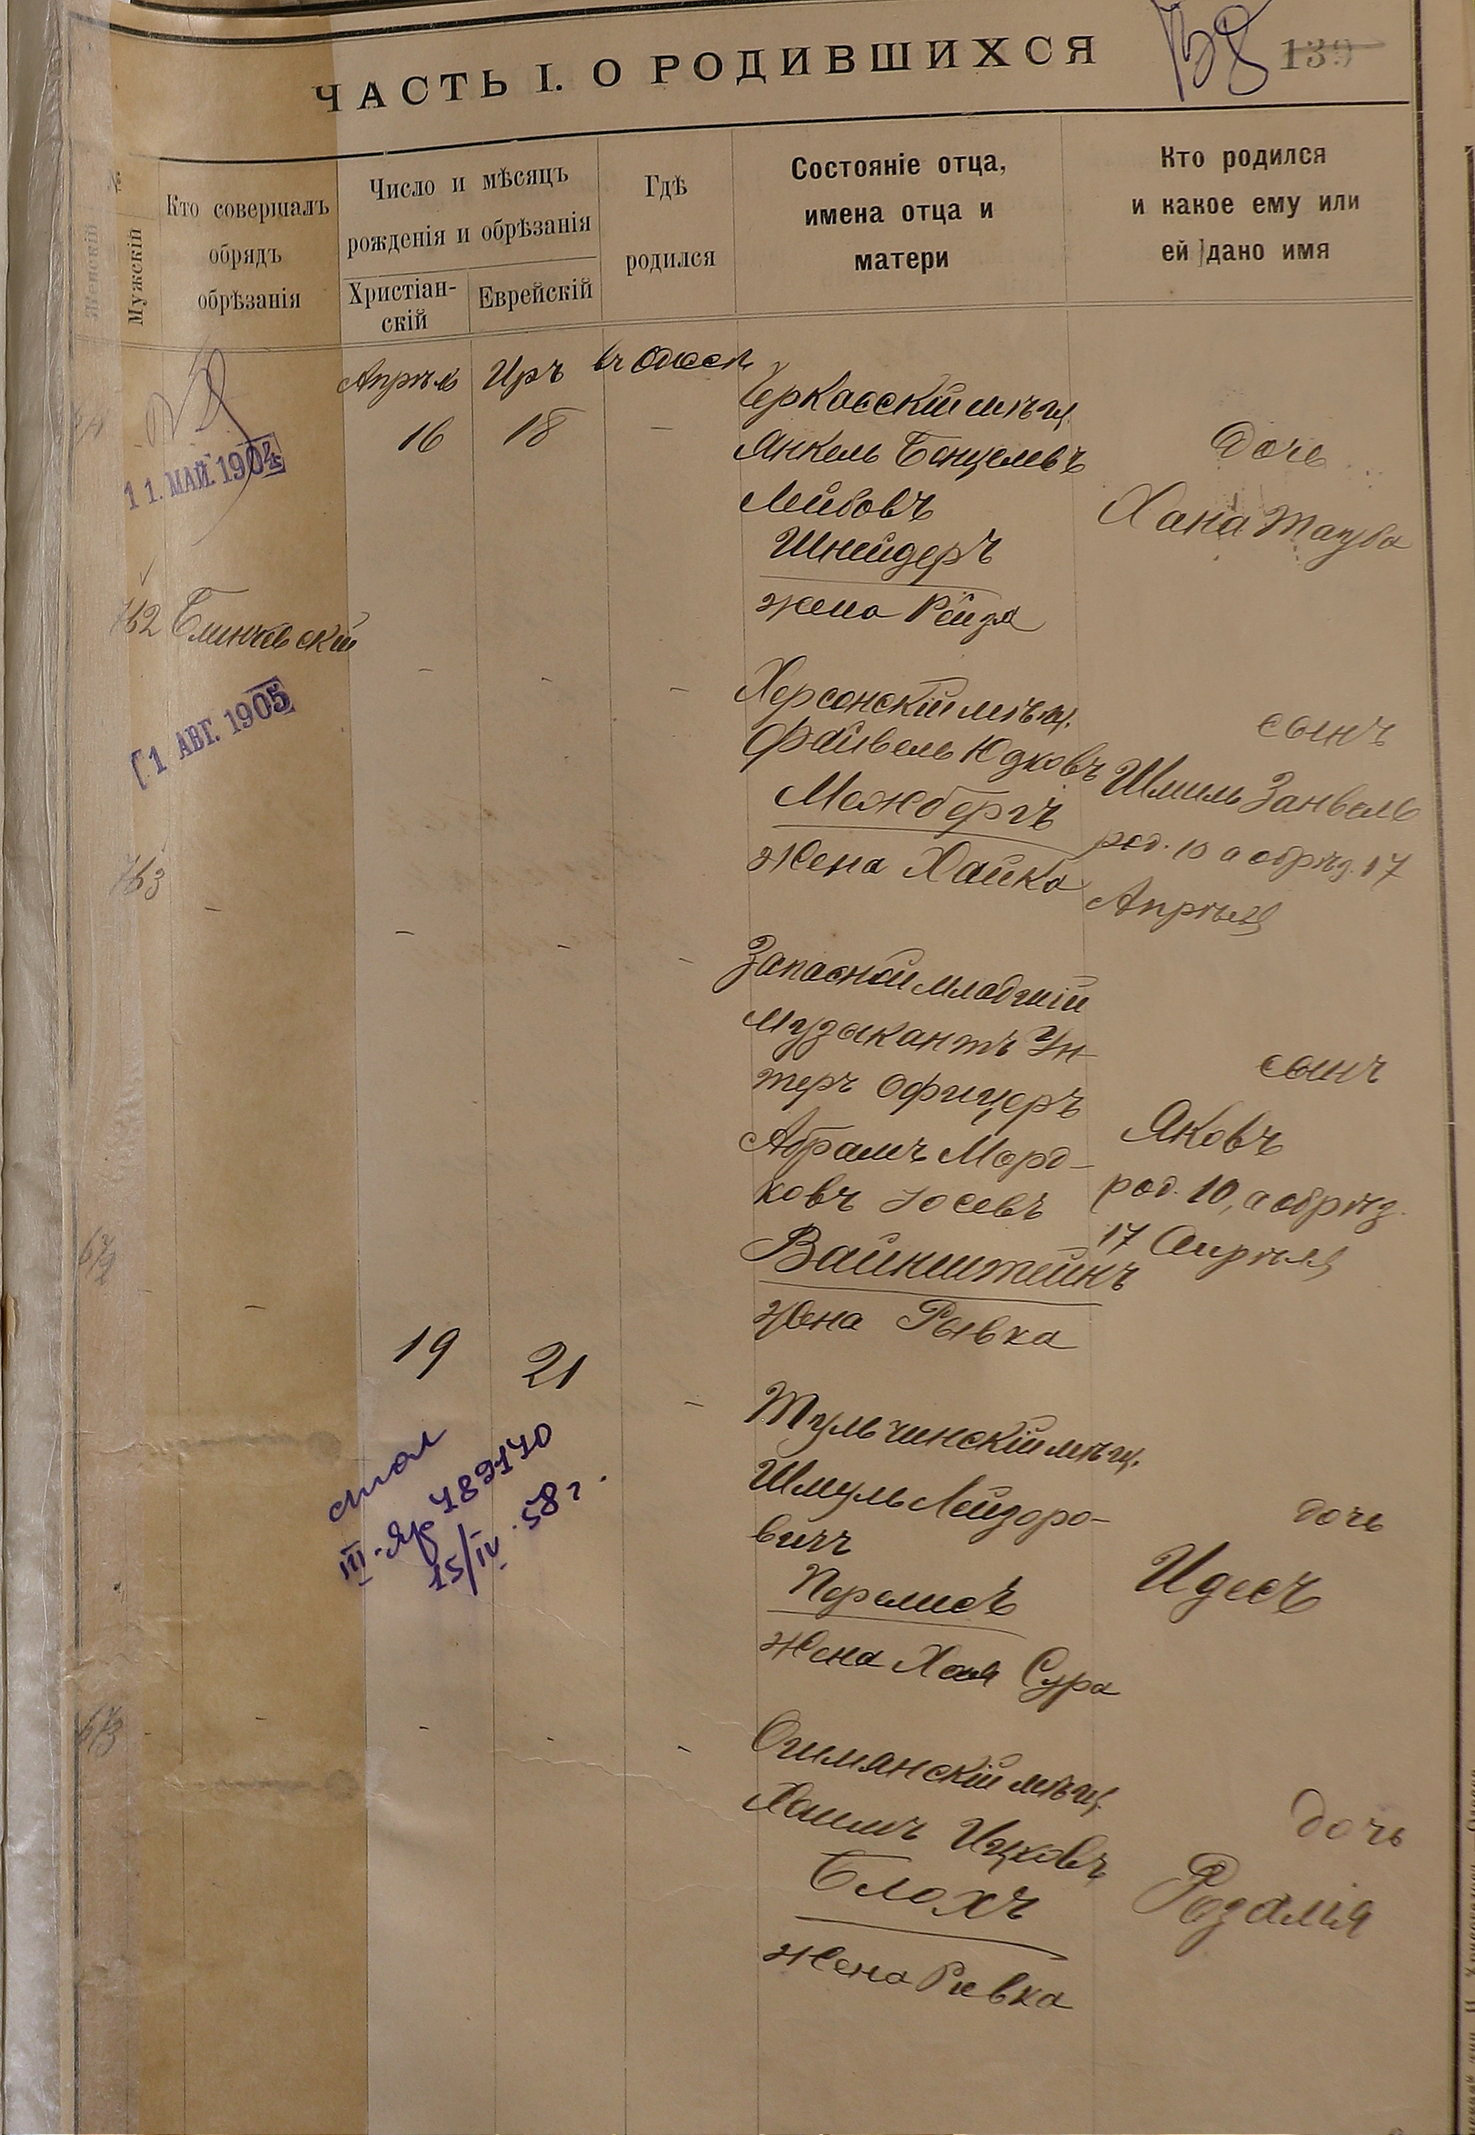 ЧАСТЬ I. О РОДИВШИХСЯ
139
№
Женскій
Мужскій
Кто совершалъ
обрядъ
обрѣзанія
Число и мѣсяцъ
рожденія и обрѣзанія
Христіан-
скій
Еврейскій
Гдѣ
родился
Состояніе отца,
имена отца и
матери
Кто родился
и какое ему или
ей дано имя
Апрѣль Иръ въ Одессѣ
16 18 –
Черкасскій мѣщ.
Янкель Бенцелевъ
Лейбовъ
Шнейдеръ
жена Рейзя
Дочь
Хана Тауба
11. МАЙ. 1904
762 Блинчевскій
– – –
1 АВГ. 1905
Херсонскій мѣщ.
Файвель Юдковъ
Межбергъ
жена Хайка
сынъ
Шмиль Занвель
род. 10 а обрѣз. 17
Апрѣля
763 – – – –
Запасной младшій
музыкантъ Ун-
теръ офицеръ
Абрамъ Морд-
ковъ Іосевъ
Вайнштейнъ
жена Рывка
сынъ
Яковъ
род. 10, а обрѣз.
17 Апрѣля
672 – 19 21 –
III-ЯР 789140
15/IV-58 г.
Тульчинскій мѣщ.
Шмуль Лейзоро-
вичъ
Перлисъ
жена Хая Сура
дочь
Идесъ
673 – – – – –
мѣщ.
Хаимъ Ицковъ
Блохъ
жена Ривка
дочь
Розалія